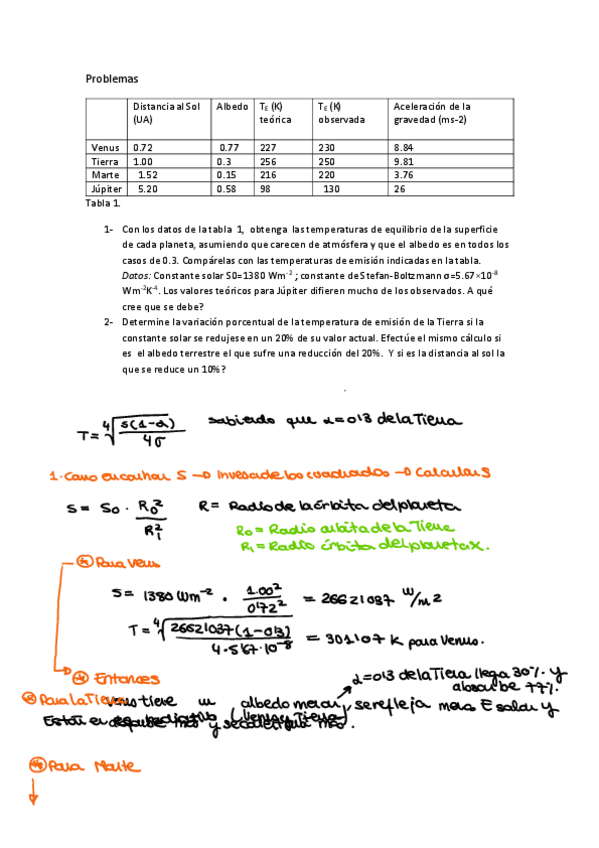 Problemas
Distancia al Sol (UA) Albedo TE (K) teórica TE (K) observada Aceleración de la gravedad (ms-2)
Venus 0.72 0.77 227 230 8.84
Tierra 1.00 0.3 256 250 9.81
Marte 1.52 0.15 216 220 3.76
Júpiter 5.20 0.58 98 130 26
Tabla 1.
1- Con los datos de la tabla 1, obtenga las temperaturas de equilibrio de la superficie
de cada planeta, asumiendo que carecen de atmósfera y que el albedo es en todos los
casos de 0.3. Compárelas con las temperaturas de emisión indicadas en la tabla.
Datos: Constante solar S0=1380 Wm-2 ; constante de Stefan-Boltzmann σ=5.67×10-8
Wm-2K-4. Los valores teóricos para Júpiter difieren mucho de los observados. A qué
cree que se debe?
2- Determine la variación porcentual de la temperatura de emisión de la Tierra si la
constante solar se redujese en un 20% de su valor actual. Efectúe el mismo cálculo si
es el albedo terrestre el que sufre una reducción del 20%. Y si es la distancia al sol la
que se reduce un 10%?
T = ⁴√(S(1-α)/4σ) sabiendo que α=0'3 de la Tierra
1. Como encontrar S → Inversa de los cuadrados → Calcular S
S = S0 · R0²/R1² R = Radio de la órbita del planeta
R0 = Radio orbita de la Tierra
R1 = Radio órbita del planeta x.
Para Venus
S = 1380 Wm-2 · 1.00²/0'72² = 2662'037 W/m2
T = ⁴√(2662'037(1-0'3)/4·5'67·10-8) = 301'07 K para Venus.
Entonces
α=0'3 de la Tierra llega 30% y
absorbe 77%.
Para la Tierra
Venus tiene un albedo menor, se refleja menos E solar y
Para Marte